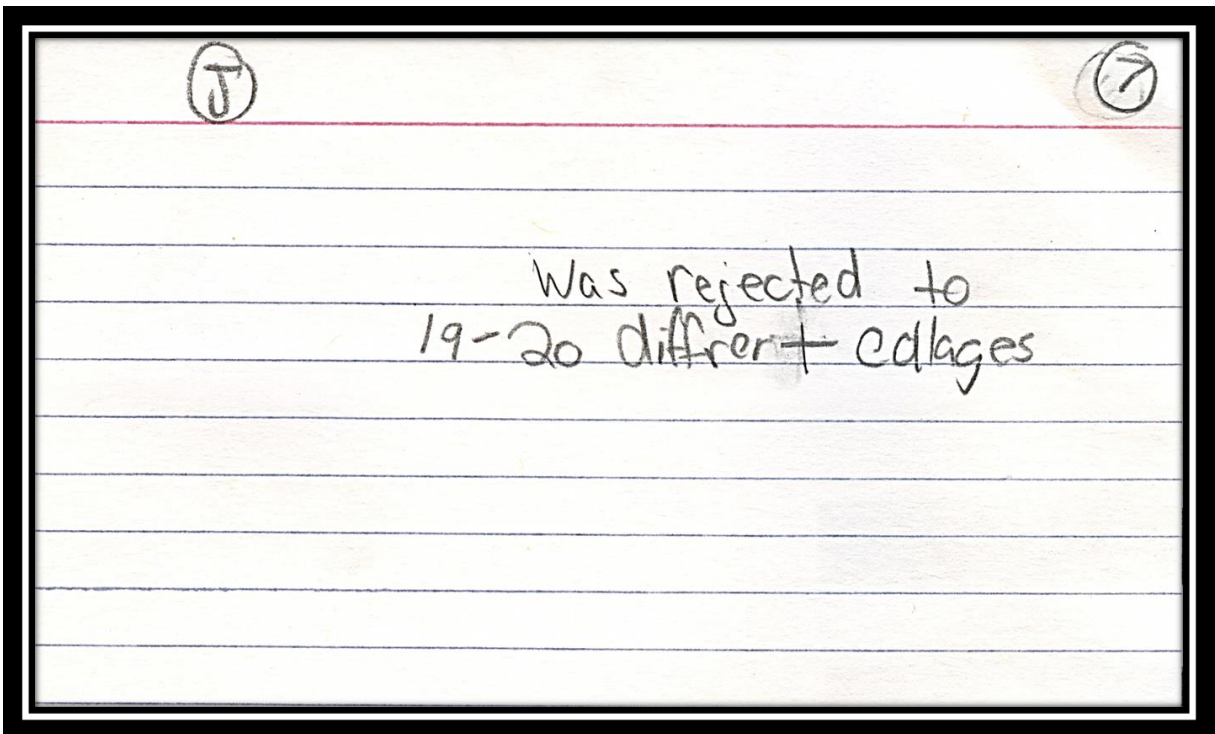 J 7
Was rejected to
19-20 diffrent collages